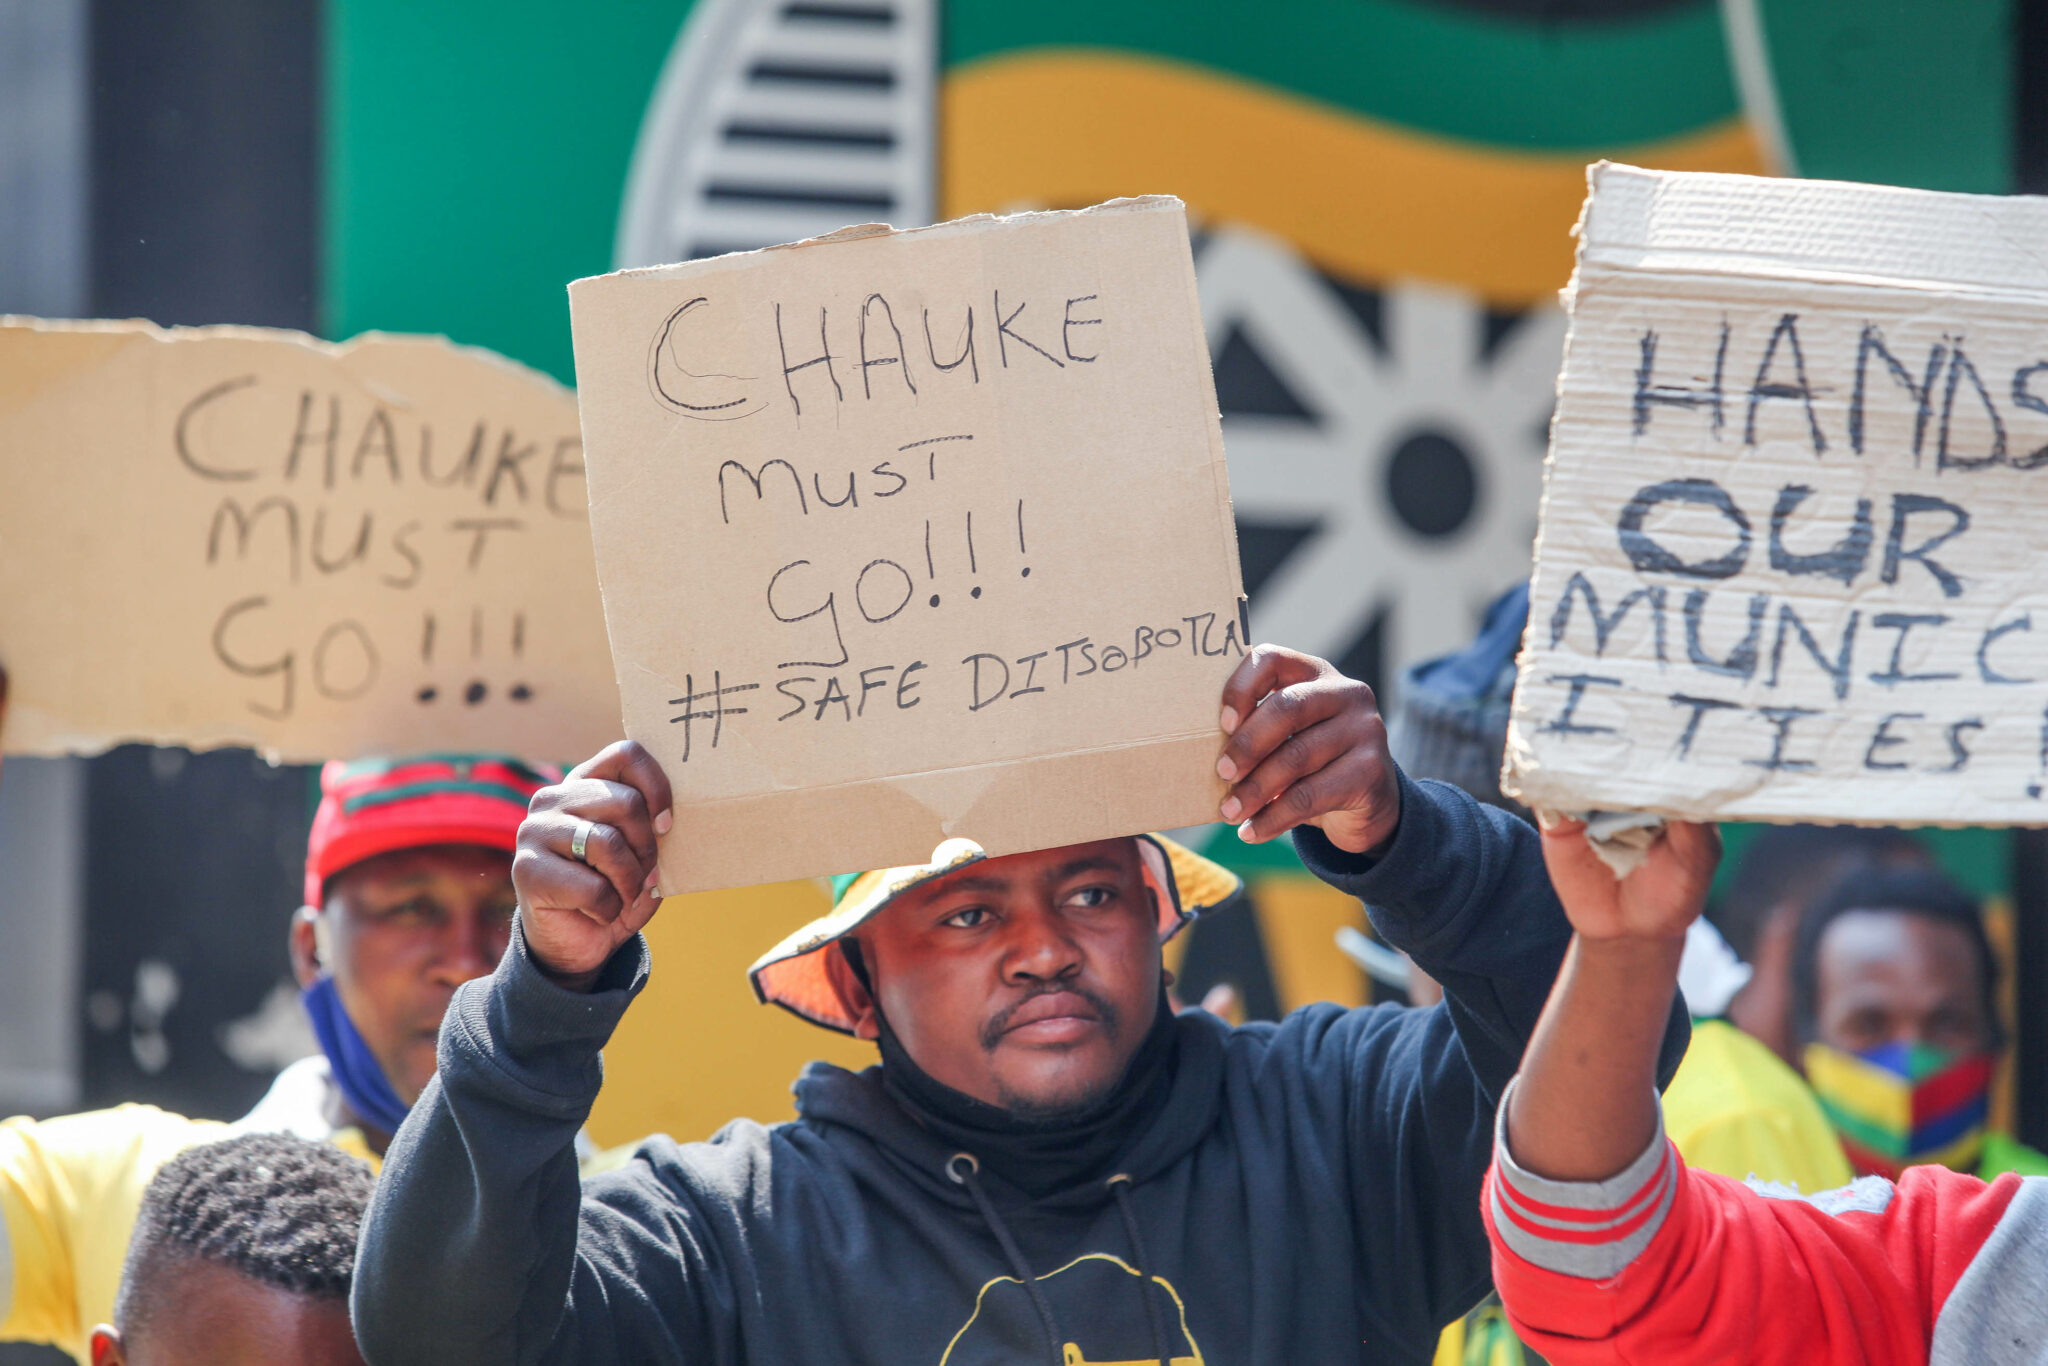 CHAUKE
MUST
GO!!!
CHAUKE
MUST
GO!!!
#SAFE DITSOBOTLA
HANDS
OUR
MUNIC
ITIES!